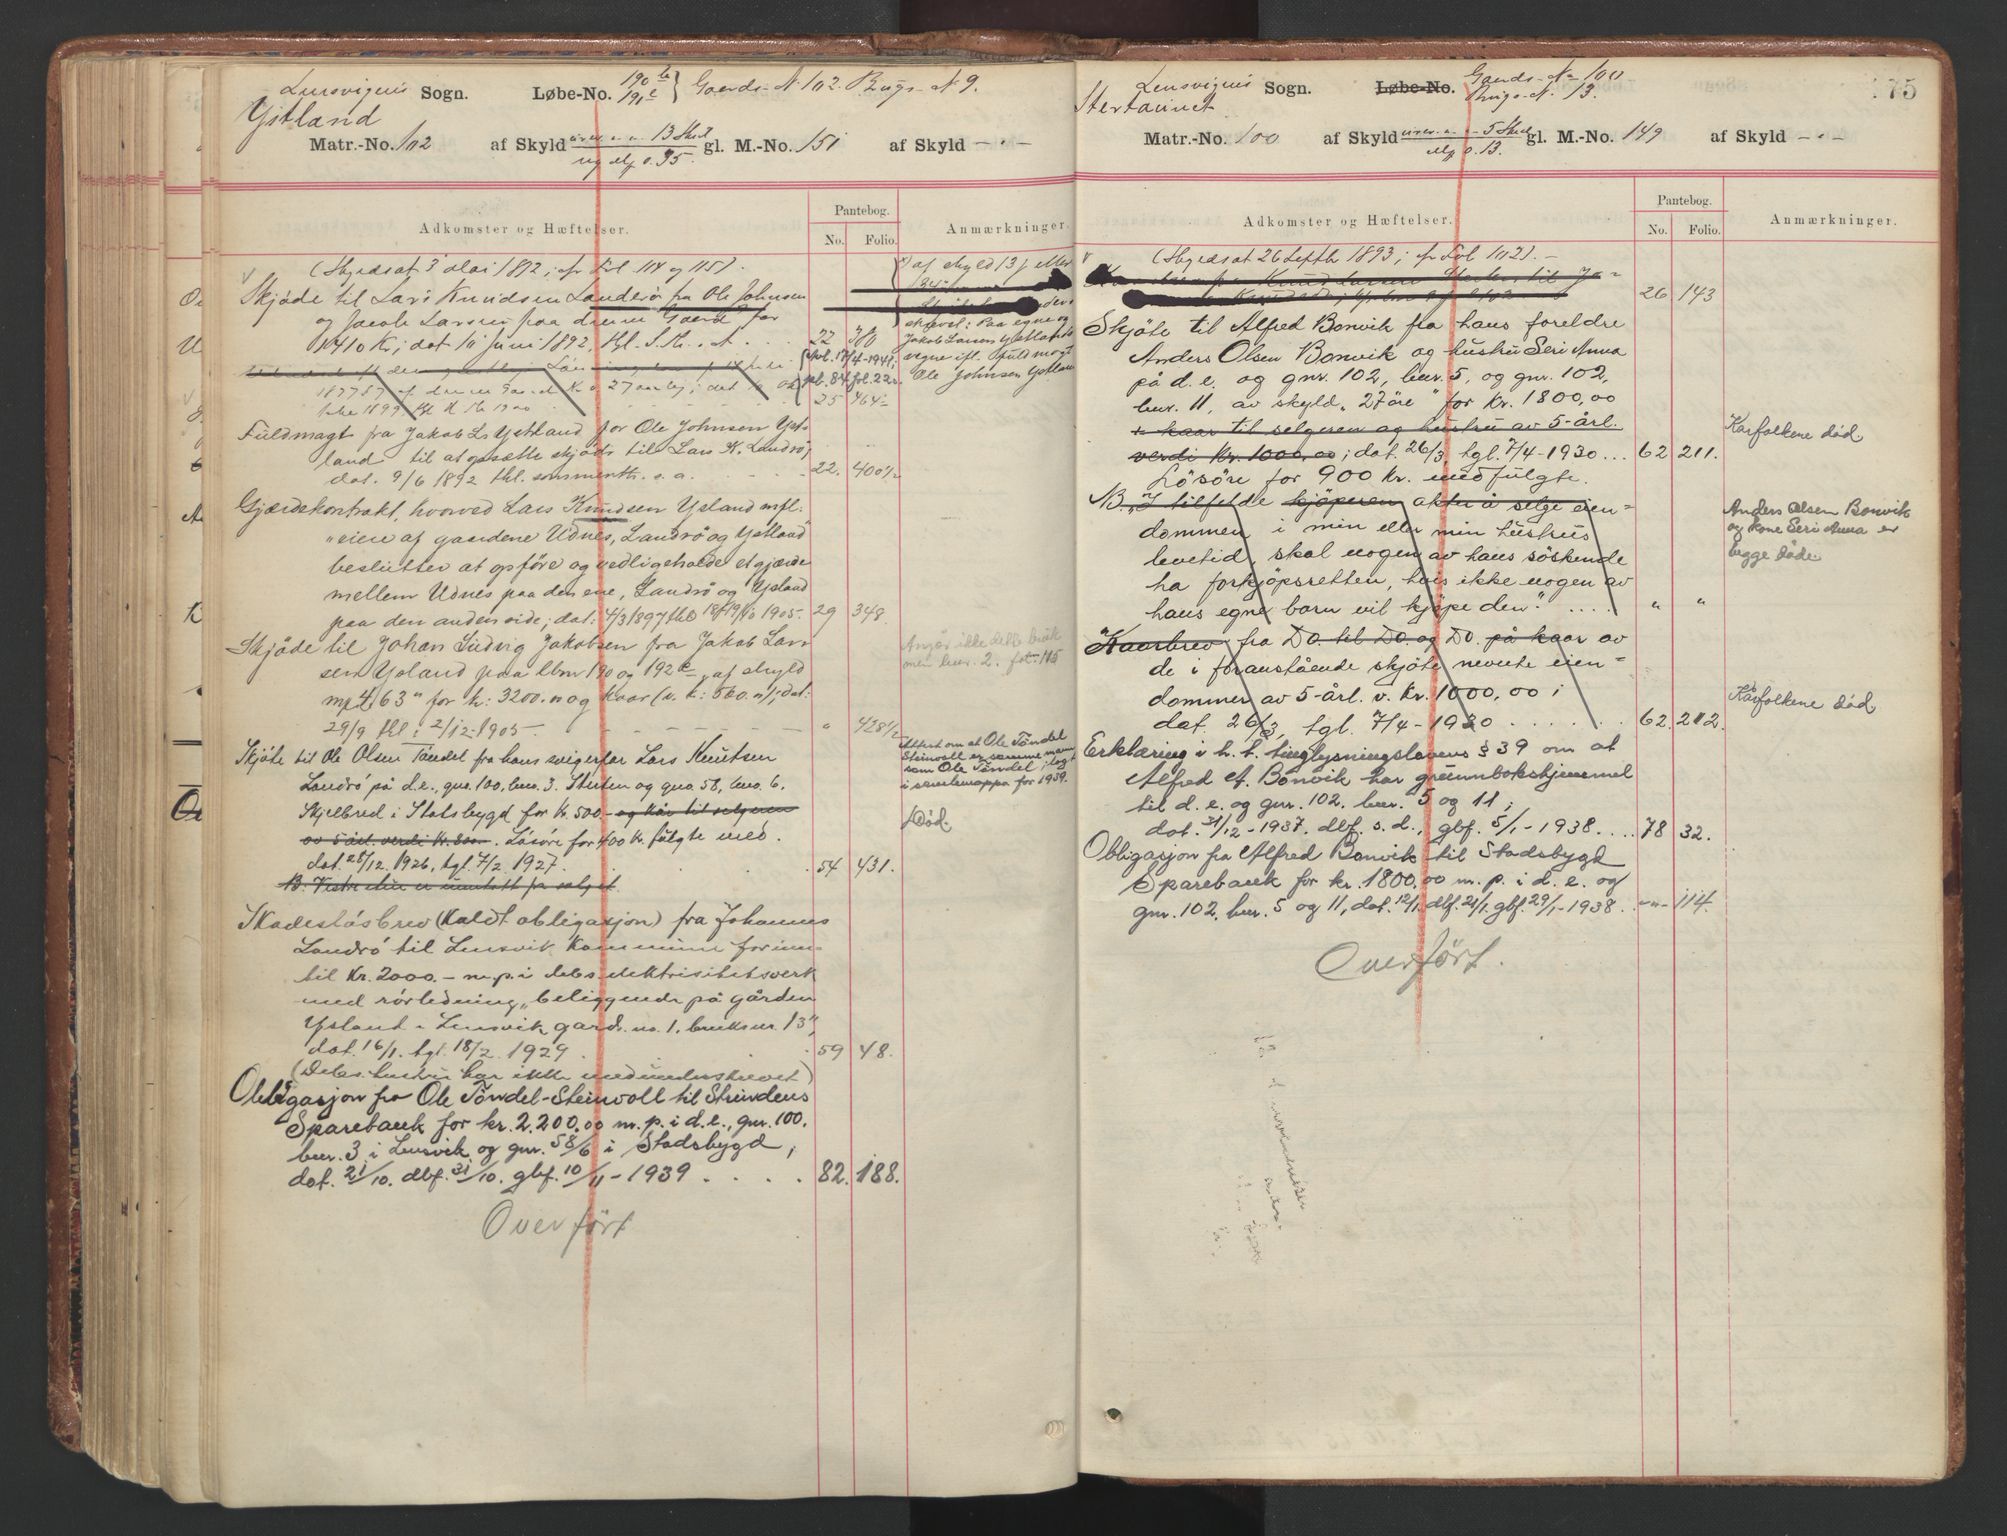 Lensvigens Sogn. Løbe-No. 190 b 191 c } Gaards-N 102. Brugs-N 9.
Ystland
Matr.-No. 102 af Skyld 13 Skil ny Mf 0.35. gl. M.-No. 151 af Skyld -"-
Adkomster og Hæftelser.
Pantebog.
No. Folio.
Anmærkninger.
(Skyldsat 3 Mai 1892, cfr Fol. 114 og 115).
Skjöde til Lars Knudsen Landrö fra Ole Johnsen
og Jacob Larsen paa denne Gaard for
1410 Kr; dat 11 juni 1892, 22 380
af skyld 13 j
Jakob Larsen Ystlands
vegne ifl. fuldmagt
Ole Johnsen Ystland
pb. 84 fol. 22
25 464
Fuldmagt fra Jakob Ls Ystland for Ole Johnsen Yst-
land til at udsætte skjöde til Lars K. Landrö,
dat. 9/6 1892 thl. sammentr. s. a. 22. 400½
Gjærdekontrakt, hvorved Lars Knudsen Ysland m fl.
"eiere af gaardene Udnes, Landrö og Ystland"
beslutter at opföre og vedligeholde et gjærde
mellem Udnes paa den ene, Landrö og Ysland
paa den anden side; dat. 4/3 1897 1905. 29 348.
Skjöde til Johan Ludvig Jakobsen fra Jakob Lar-
sen Ysland paa lbnr 190 og 192 c, af skyld
mp 4,63" for kr: 3200.00 og kaar (v. k: 560.00); dat:
29/9 thl: 2/12-1905. " 428½
Angår ikke dette bruk
men bnr. 2. fol. 115
Skjöte til Ole Olsen Töndel fra hans svigerfar Lars Knutsen
Landrö på d.e., gno. 100, bno. 3. Stenten og gno 58, bno. 6.
Skjelbred i Stadsbygd for Kr. 500.- og kår til selgeren
av 5 årl. verdi Kr. 800. Lösöre for 400 kr. fulgte med.
dat. 28/12. 1926, tgl. 7/2 1927. 54 431.
Attest om at Ole Töndel
Steinvoll er samme mann
som Ole Töndel; lagt
i saklemappa for 1939.
Död.
Skadeslösbrev (kaldt obligasjon) fra Johannes
Landrö til Lensvik Kommune for inn-
til Kr. 2000.- m.p. i debs elektrisitetsverk
med rörledning, "beliggende på gården
Ysland i Lensvik gards no. 1, bruksnr. 13",
dat. 16/1. tgl. 18/2. 1929. 59 48.
(Debs. hustru har ikke medunderskrevet)
Obligasjon fra Ole Töndel-Steinvoll til Strindens
Sparebank for kr. 2.200,00 m. p. i d. e., gnr. 100.
bnr. 3 i Lensvik og gnr. 58/6 i Stadsbygd;
dat. 21/10. dbf. 31/10. gbf. 10/11-1939. 82. 188.
Overfört
Lensvigens Sogn. Løbe-No. Gaards-N- 100 Brugs-N. 13.
175
Stertaunet.
Matr.-No. 100 af Skyld 5 Skil Mf 0.13. gl. M.-No. 149 af Skyld -"-
Adkomster og Hæftelser.
Pantebog.
No. Folio.
Anmærkninger.
(Skyldsat 26 Septb 1893; cfr Fol 112).-
26 143
Skjöte til Alfred Bonvik fra hans foreldre
Anders Olsen Bonvik og hustru Seri Anna
på d. e. og gnr. 102, bnr. 5, og gnr. 102,
bnr. 11, av skyld "27 öre" for kr. 1800,00
+ kaar til selgeren og hustru av 5-årl.
verdi kr. 1000,00; dat. 26/3, tgl. 7/4-1930... 62 211.
Karfolkene död
Lösöre for 900 kr. medfulgte.
B. "I tilfelde kjöperen akter å selge eien-
dommen i min eller min hustrus
levetid, skal nogen av hans söskende
ha forkjöpsretten, hvis ikke nogen av
hans egne barn vil kjöpe den". .... " "
Anders Olsen Bonvik
og kone Seri Anna er
begge döde
Kaarbrev fra Do. til Do. og Do. på kaar av
de i foranstående skjöte nevnte eien-
dommer av 5-årl. v. kr. 1000,00;
dat. 26/3, tgl. 7/4-1930 ...... 62. 212.
Kårfolkene död
Erklæring i h. t. tinglysningslovens § 39 om at
Alfred A. Bonvik har grunnbokshjemmel
til d. e. og gnr. 102. bnr. 5 og 11;
dat. 31/12-1937. dbf. s. d., gbf. 5/1-1938.... 78 32.
Obligasjon fra Alfred Bonvik til Stadsbygd
Sparebank for kr. 1800,00 m. p. i d. e. og
gnr. 102, bnr. 5 og 11, dat. 12/1. dbf. 21/1. gbf. 29/1-1938. -"- 114.
Overfört.